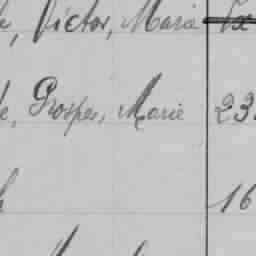 , Victor, Marie
, Prosper, Marie 23
16